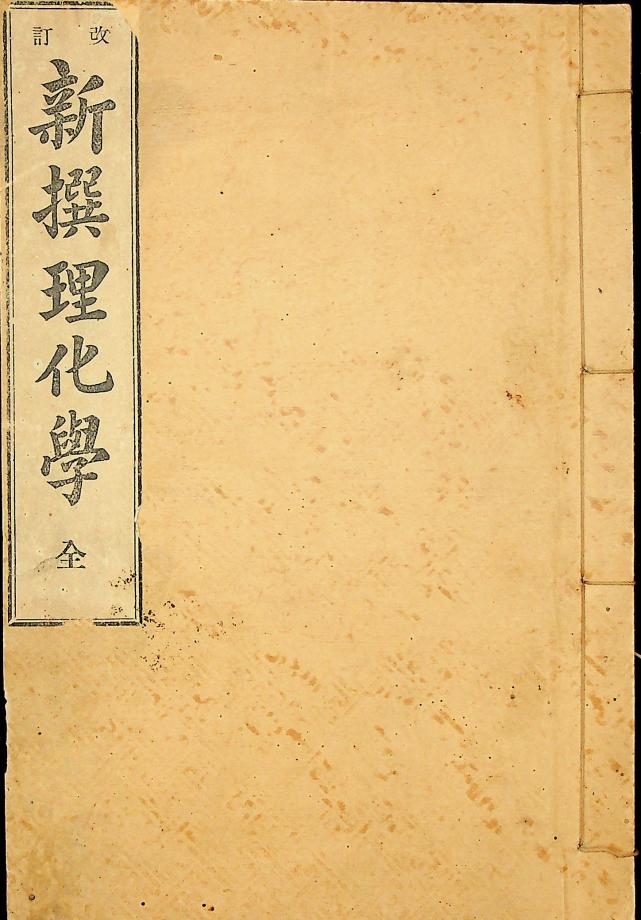 改訂
新撰理化學
全